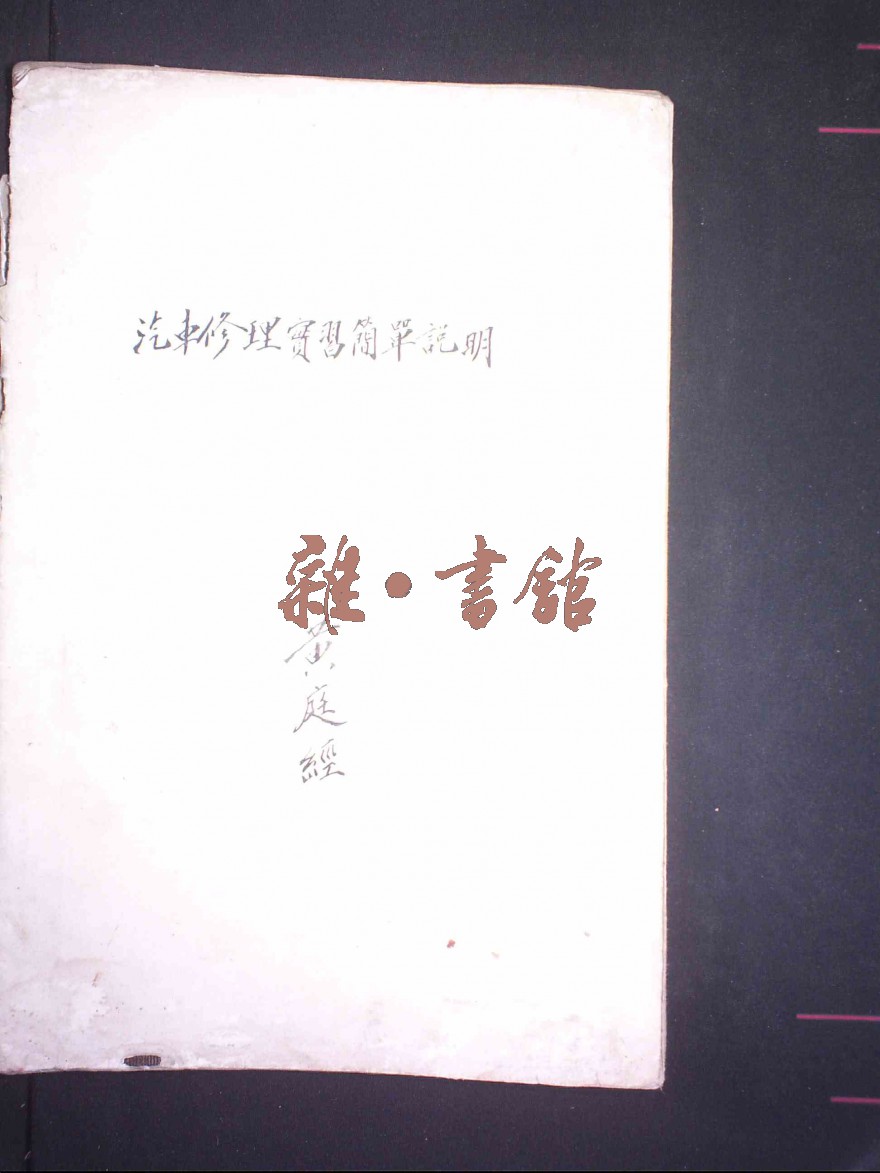 汽車修理實習簡單說明
雜·書館
黃庭經